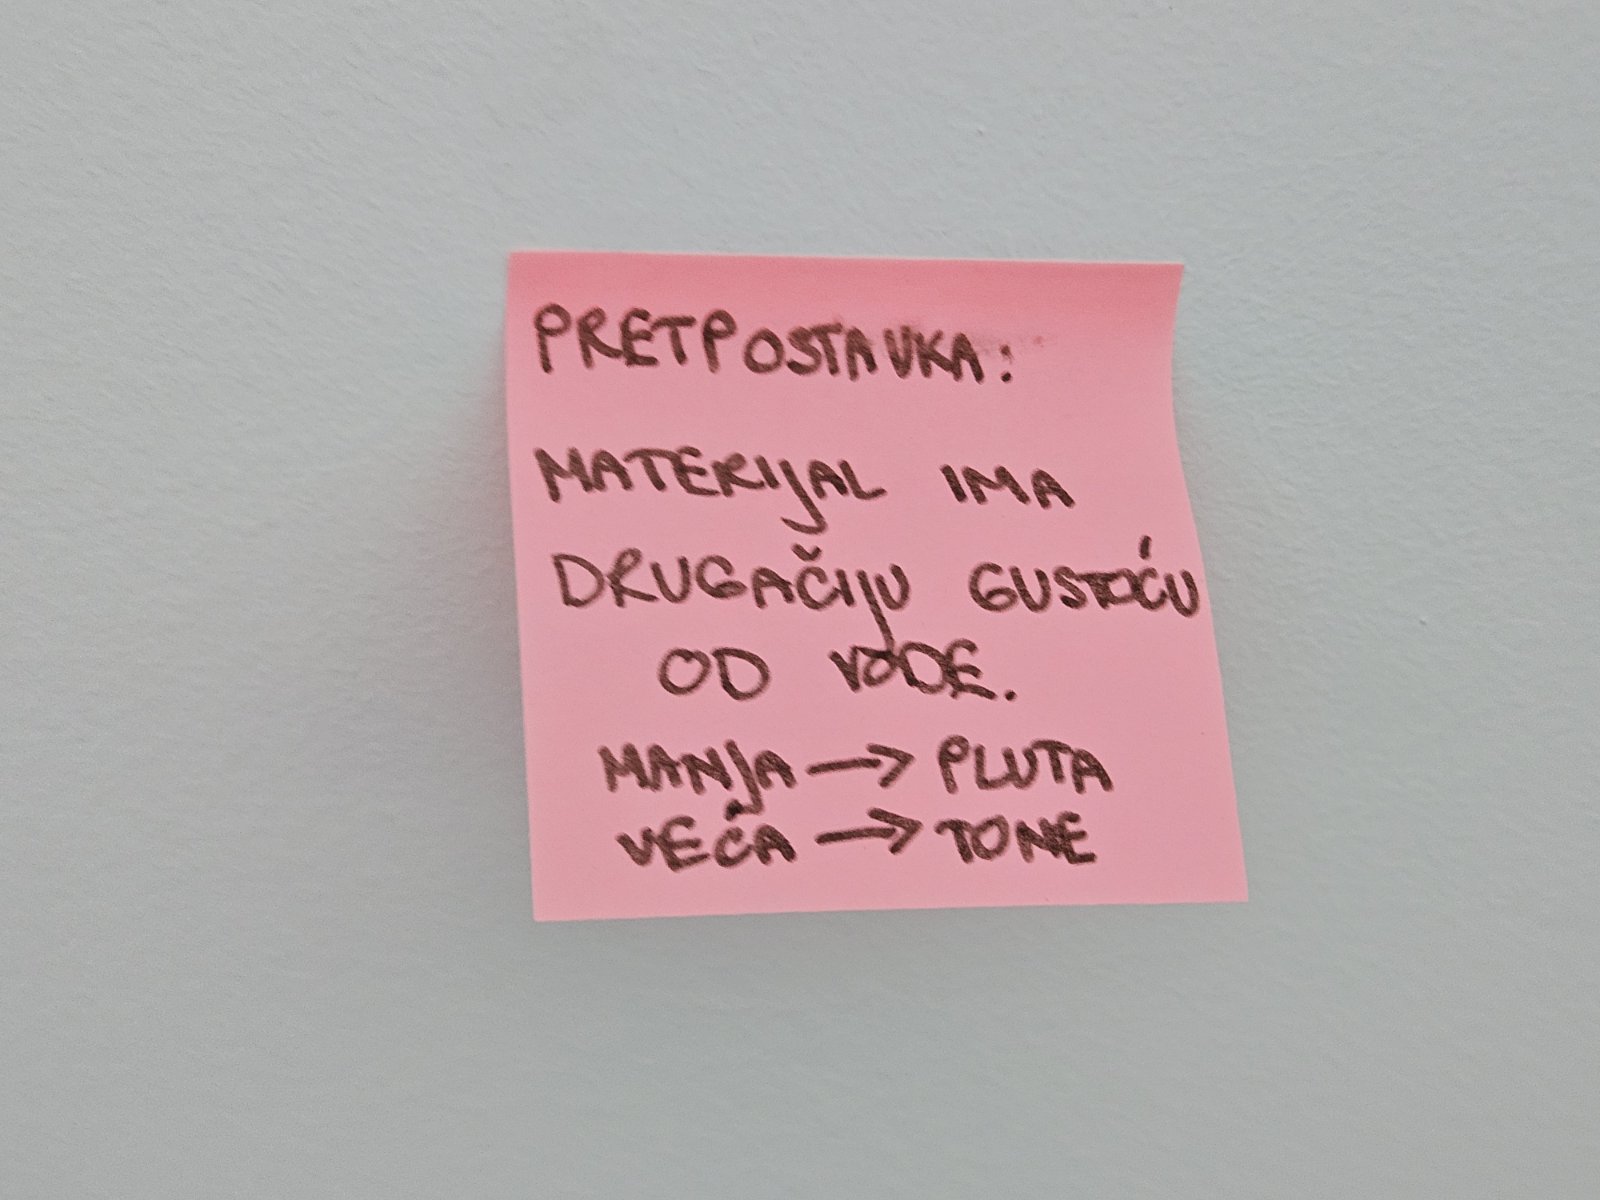 PRETPOSTAVKA:
MATERIJAL IMA
DRUGAČIJU GUSTOĆU
OD VODE.
MANJA → PLUTA
VEĆA → TONE